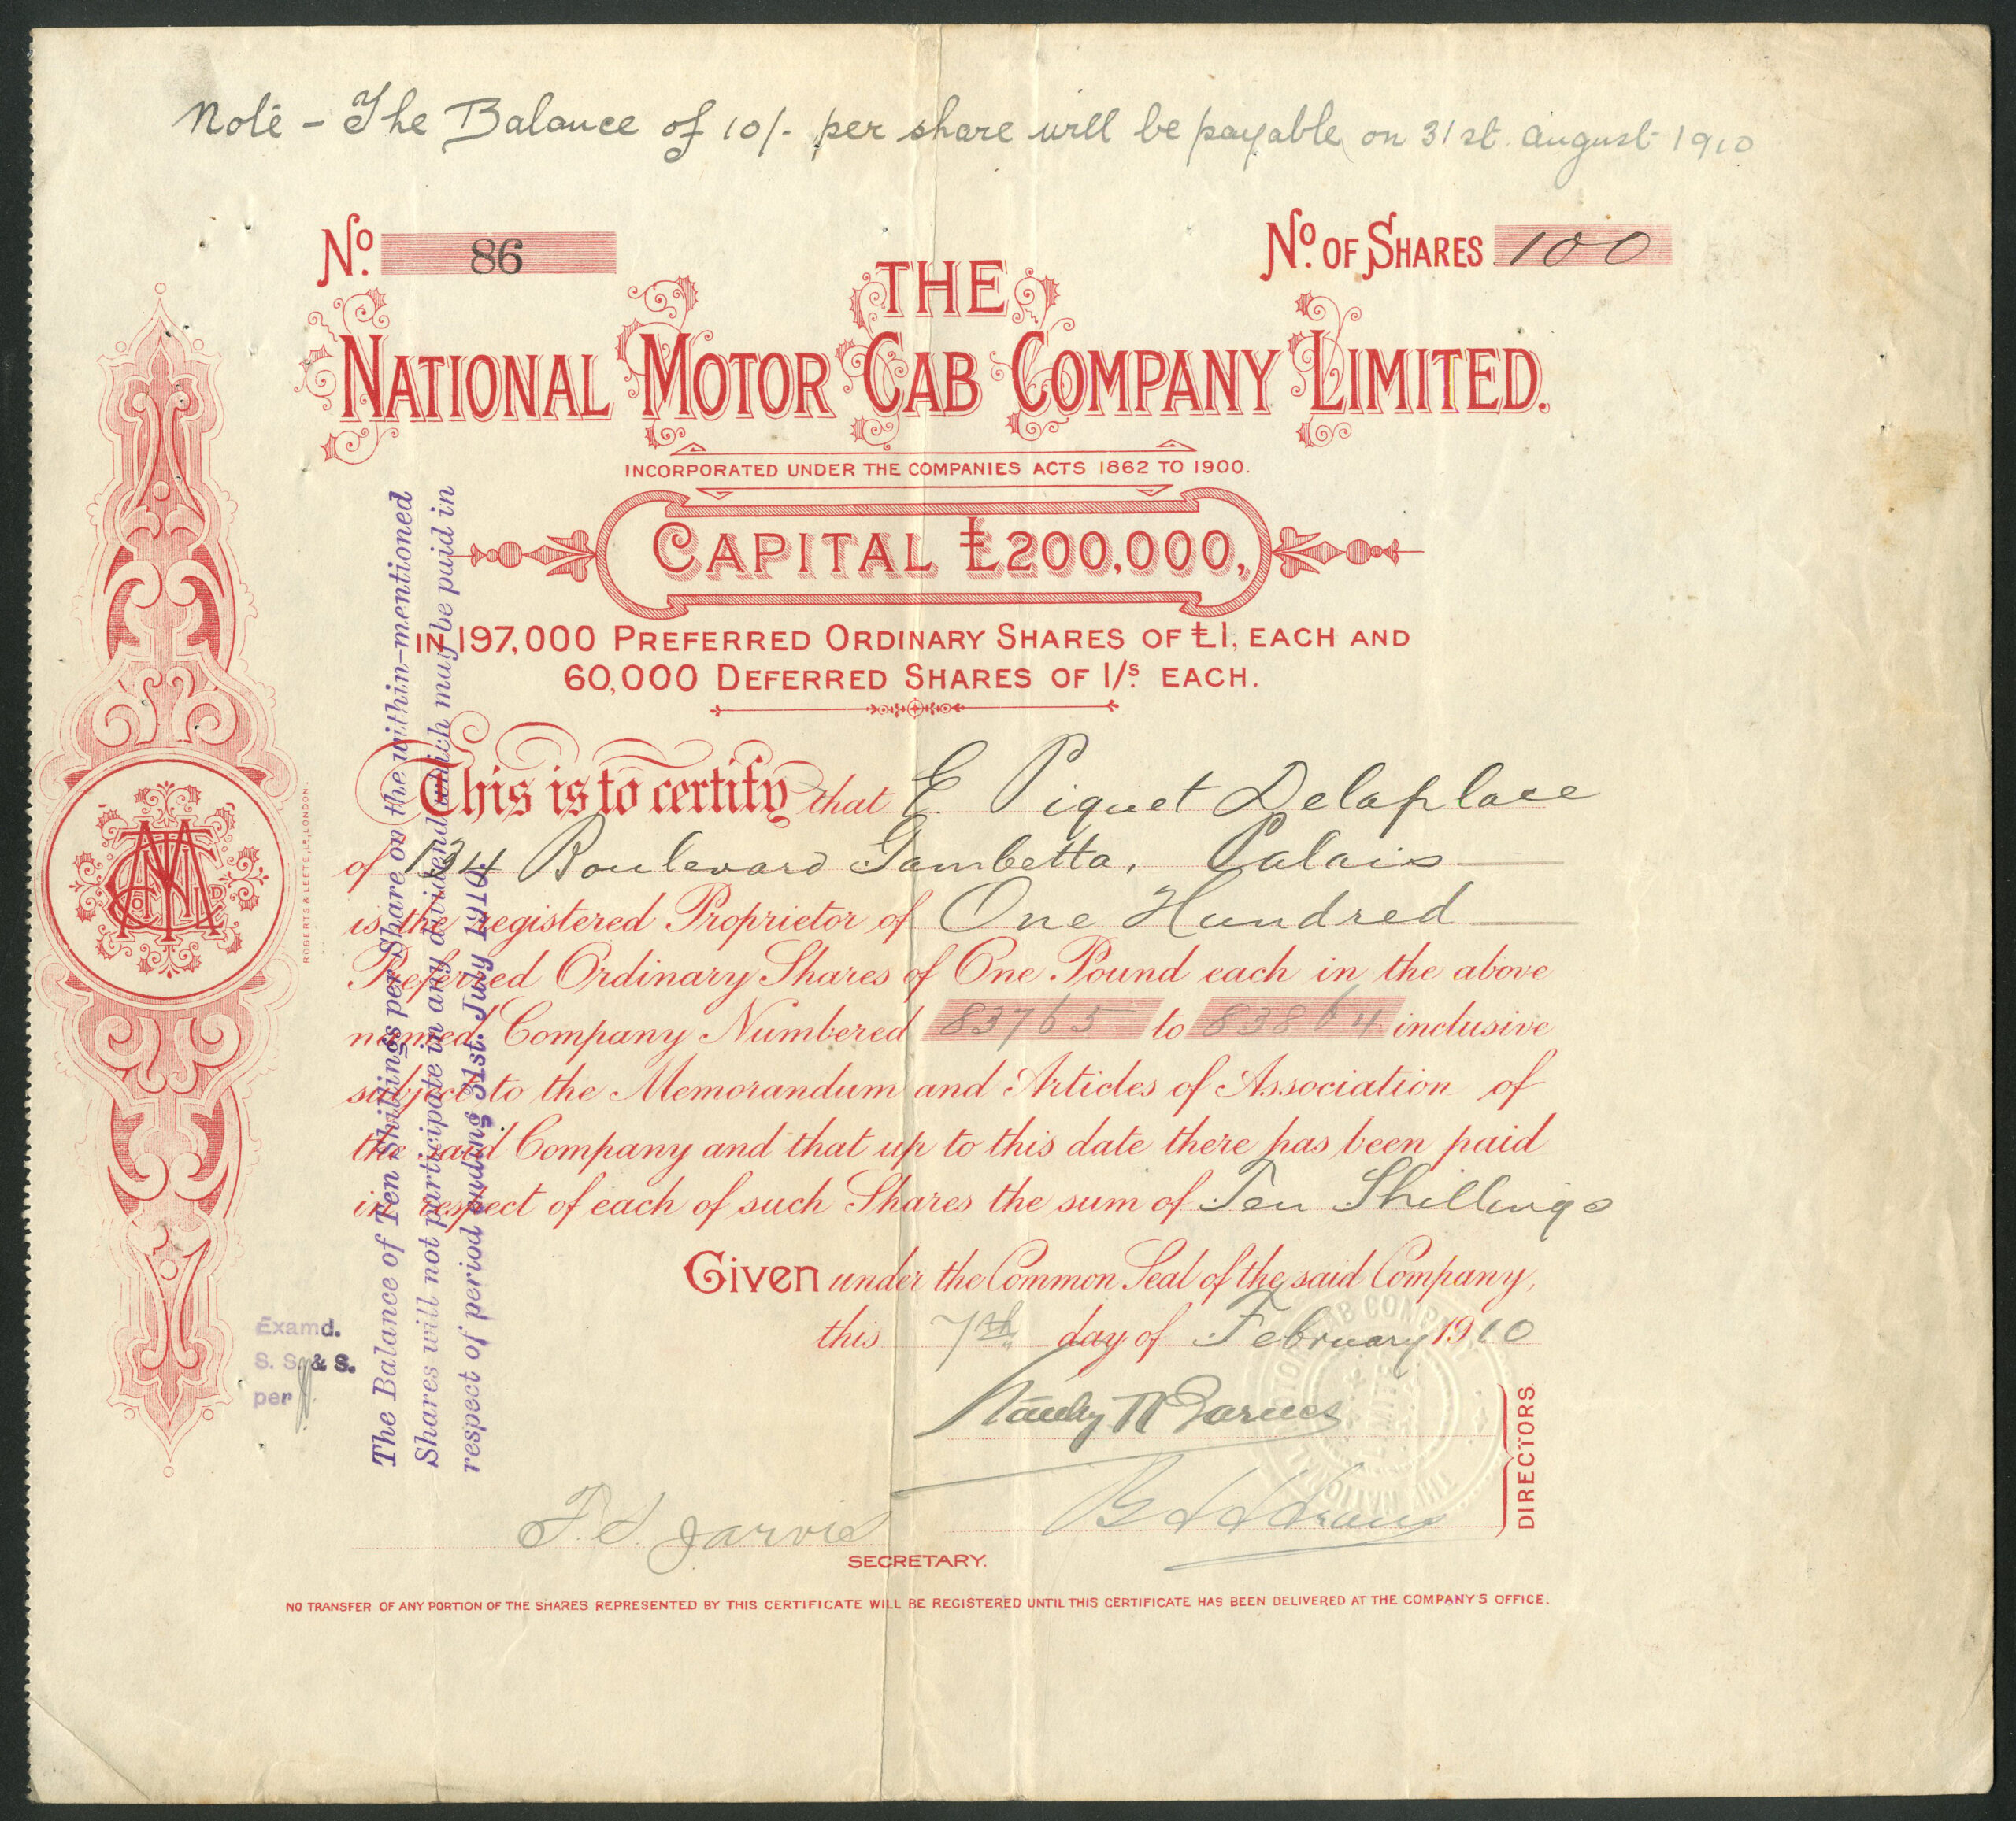 Note - The Balance of 10/- per share will be payable on 31st August 1910
No. 86
No. OF SHARES 100
THE
NATIONAL MOTOR CAB COMPANY LIMITED.
INCORPORATED UNDER THE COMPANIES ACTS 1862 TO 1900.
CAPITAL £200,000,
IN 197,000 PREFERRED ORDINARY SHARES OF £1, EACH AND
60,000 DEFERRED SHARES OF 1/s EACH.
This is to certify that E. Piquet Delaplace
of 134 Boulevard Gambetta, Calais
is the registered Proprietor of One Hundred
Preferred Ordinary Shares of One Pound each in the above
named Company Numbered 83765 to 83864 inclusive
subject to the Memorandum and Articles of Association of
the said Company and that up to this date there has been paid
in respect of each of such Shares the sum of Ten Shillings
Given under the Common Seal of the said Company,
this 7th day of February 1910
DIRECTORS.
F. S. Jarvis
SECRETARY.
NO TRANSFER OF ANY PORTION OF THE SHARES REPRESENTED BY THIS CERTIFICATE WILL BE REGISTERED UNTIL THIS CERTIFICATE HAS BEEN DELIVERED AT THE COMPANY'S OFFICE.
The Balance of Ten Shillings per Share on the within-mentioned
Shares will not participate in any dividend which may be paid in
respect of period ending 31st. July 1910.
Examd.
S. S. & S.
per
ROBERTS & LEETE, LD, LONDON.